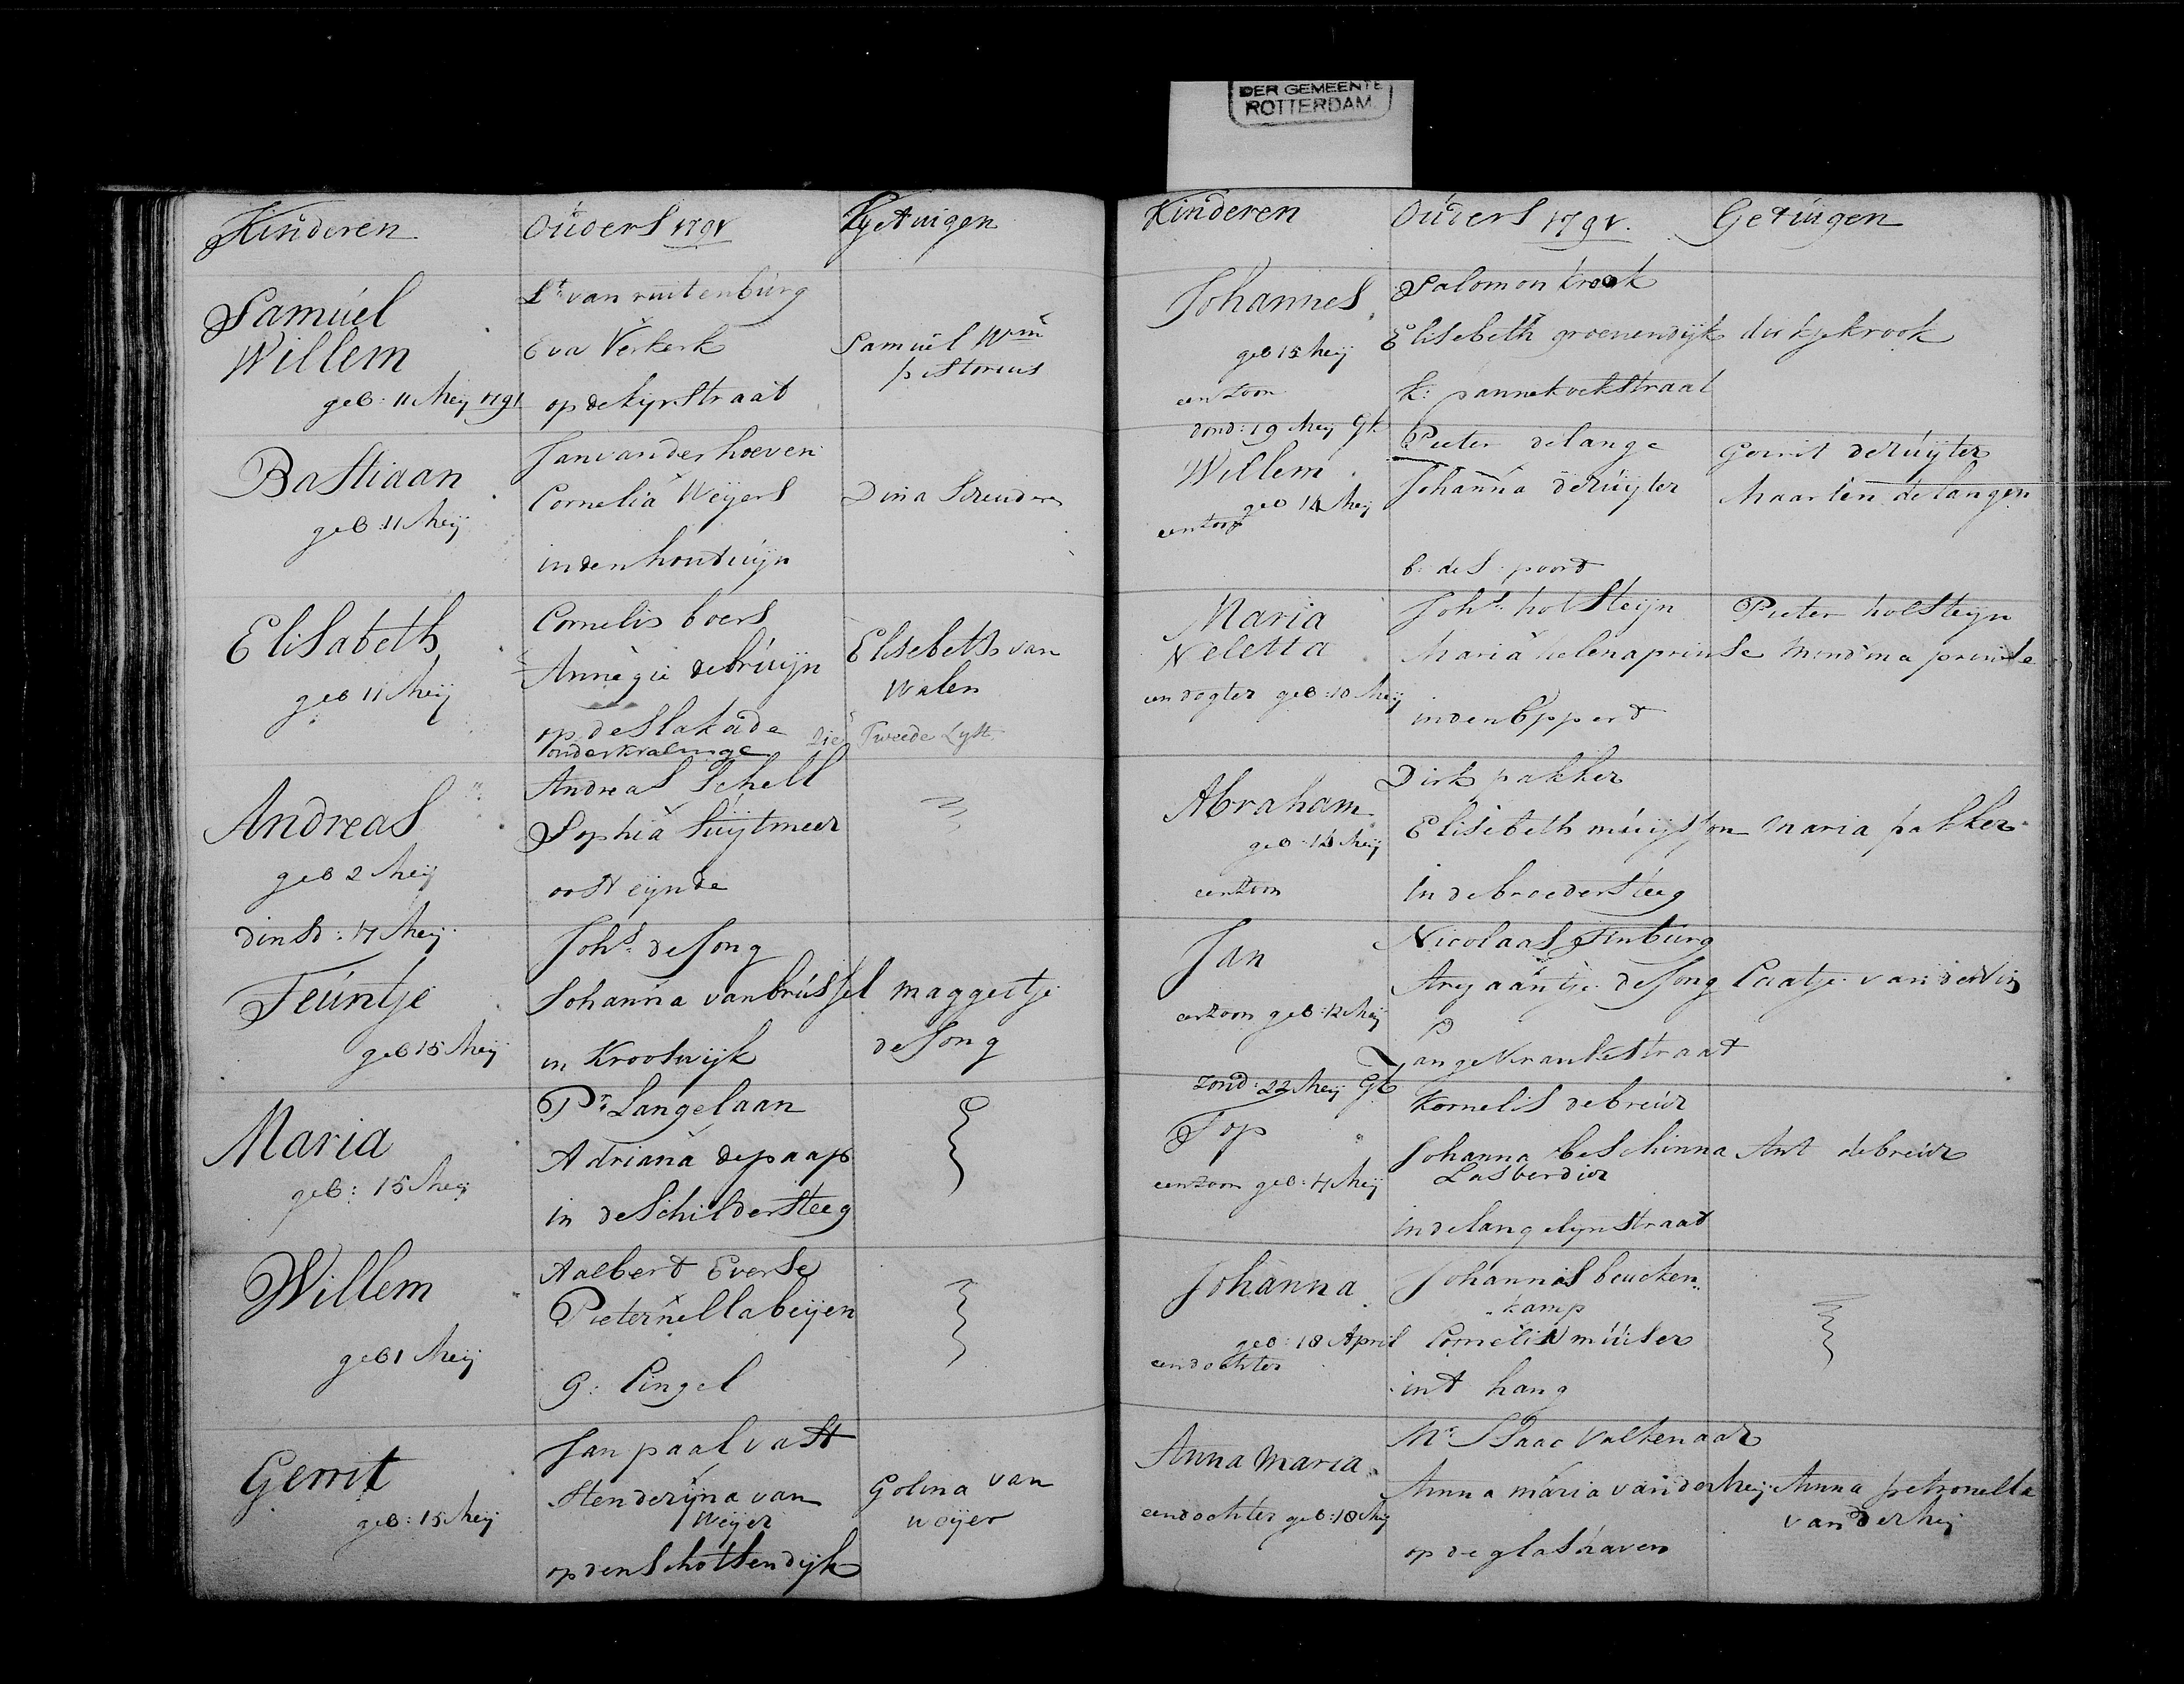 DER GEMEENTE
ROTTERDAM.
Kinderen Ouders 1791 Getuigen
Samuel
Willem
geb: 11 Meij 1791
Lt van ruitenburg
Eva Verkerk
op de Lijnstraat
Samuel Wm
pistorius
Bastiaan
geb: 11 Meij
Jan van der hoeven
Cornelia Weijers
in den houttuijn
Dina Schreuders
Elisabeth
geb 11 Meij
Cornelis boers
Annegie de bruijn
op de Stakade
onder kralinge
Elisebeth van
Walen
Die Tweede Lyst
Andreas
geb 2 Meij
Andreas Schell
Sophia Suijtmeer
oost eijnde
dinsd: 17 Meij
Teuntje
geb 15 Meij
Johs de Jong
Johanna van brussel
in Krooswijk
maggeltje
de Jong
Maria
geb: 15 Meij
Pr Langelaan
Adriana de paap
in de Schildersteeg
Willem
geb 1 Meij
Aalbert Everse
Pieternella beijen
G: Cingel
Gerrit
geb: 15 Meij
Jan paalvast
Henderijna van
Weijer
op den Schottsendijk
Golina van
Weijer
Kinderen Ouders 1791. Getuigen
Johannes
geb 15 Meij
een zoon
Salomon krook
Elisebeth groenendijk
K: pannekoekstraat
dirkje krook
dond: 19 Meij Gk
Willem
geb 14 Meij
een zoon
Pieter de lange
Johanna de ruijter
b: de S: poort
Gerrit de ruijter
Maarten de langen
Maria
Neletta
een dogter geb: 10 Meij
Johs holsteijn
Maria helena prinse
in den Oppert
Pieter holsteijn
prinse
Abraham
geb: 14 Meij
een zoon
Dirk pakker
Elisebeth
in de broedersteeg
Maria pakker
Jan
een zoon geb: 12 Meij
Nicolaas Tinburg
Areyaantje de Jong
Lange Vrankestraat
Caatje van der
zond: 22 Meij Gk
Top
een zoon geb: 17 Meij
Kornelis de breur
Johanna beschinna
Lasberdier
in de lange lynstraat
Ant de breur
Johanna
geb: 18 April
een dochter
Johannis beucken
kamp
Cornelia muiser
int hang
Anna Maria
een dochter geb: 18 Meij
Mr Isaac Valkenaar
Anna maria van der heij
op de glashaven
Anna petronella
van der heij